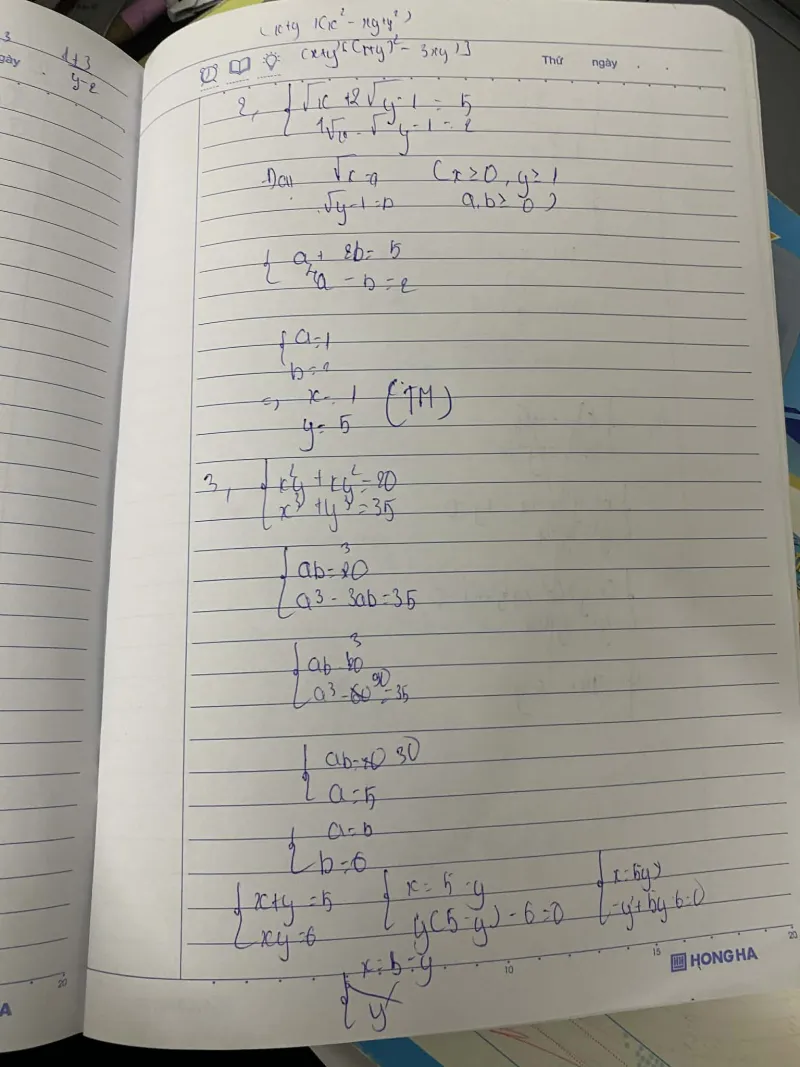 3
1+3
gày
y-2
(x+y)(x² - xy+y²)
(x+y)[(x+y)² - 3xy]
Thứ ngày
2, { √x +2√y-1 = 5
4√x - √y-1 = 2
Đặt √x = a (x ≥ 0, y ≥ 1
√y-1 = b a, b ≥ 0)
{ a + 2b = 5
4a - b = 2
{ a = 1
b = 2
=> x = 1 (TM)
y = 5
3, { x²y + xy² = 30
x³ + y³ = 35
{ ab = 30
a³ - 3ab = 35
{ ab = 30
a³ - 90 = 35
{ ab = 30
a = 5
{ a = 5
b = 6
{ x+y = 5 { x = 5 - y { x = 5-y
xy = 6 y(5-y) - 6 = 0 -y²+5y-6=0
x = 5 - y
y
10 15 20
HONG HA
20
A